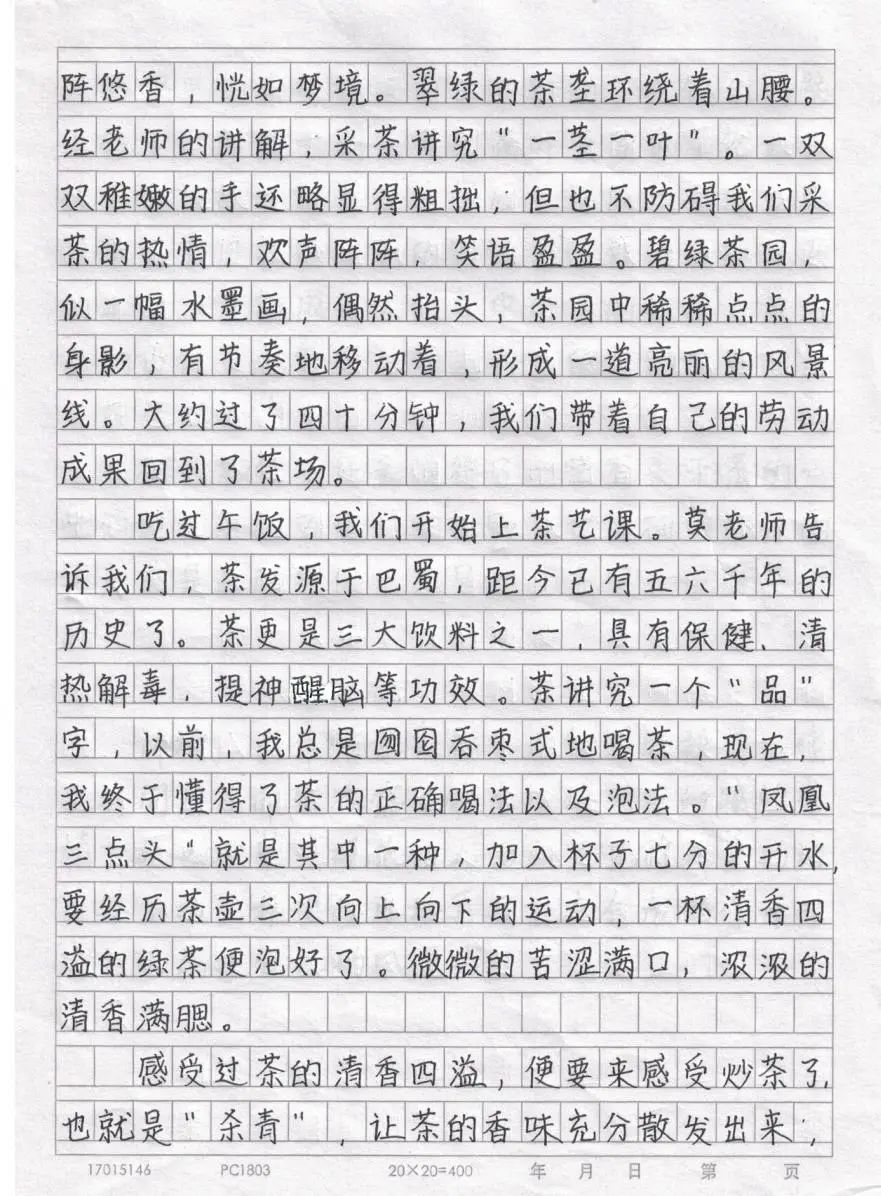 阵悠香，恍如梦境。翠绿的茶垄环绕着山腰。
经老师的讲解，采茶讲究"一茎一叶"。一双
双稚嫩的手还略显得粗拙，但也不防碍我们采
茶的热情，欢声阵阵，笑语盈盈。碧绿茶园，
似一幅水墨画，偶然抬头，茶园中稀稀点点的
身影，有节奏地移动着，形成一道亮丽的风景
线。大约过了四十分钟，我们带着自己的劳动
成果回到了茶场。
吃过午饭，我们开始上茶艺课。莫老师告
诉我们，茶发源于巴蜀，距今已有五六千年的
历史了。茶更是三大饮料之一，具有保健、清
热解毒，提神醒脑等功效。茶讲究一个"品"
字，以前，我总是囫囵吞枣式地喝茶，现在，
我终于懂得了茶的正确喝法以及泡法。"凤凰
三点头"就是其中一种，加入杯子七分的开水，
要经历茶壶三次向上向下的运动，一杯清香四
溢的绿茶便泡好了。微微的苦涩满口，浓浓的
清香满腮。
感受过茶的清香四溢，便要来感受炒茶了，
也就是"杀青"，让茶的香味充分散发出来，
17015146 PC1803 20×20=400 年 月 日 第 页